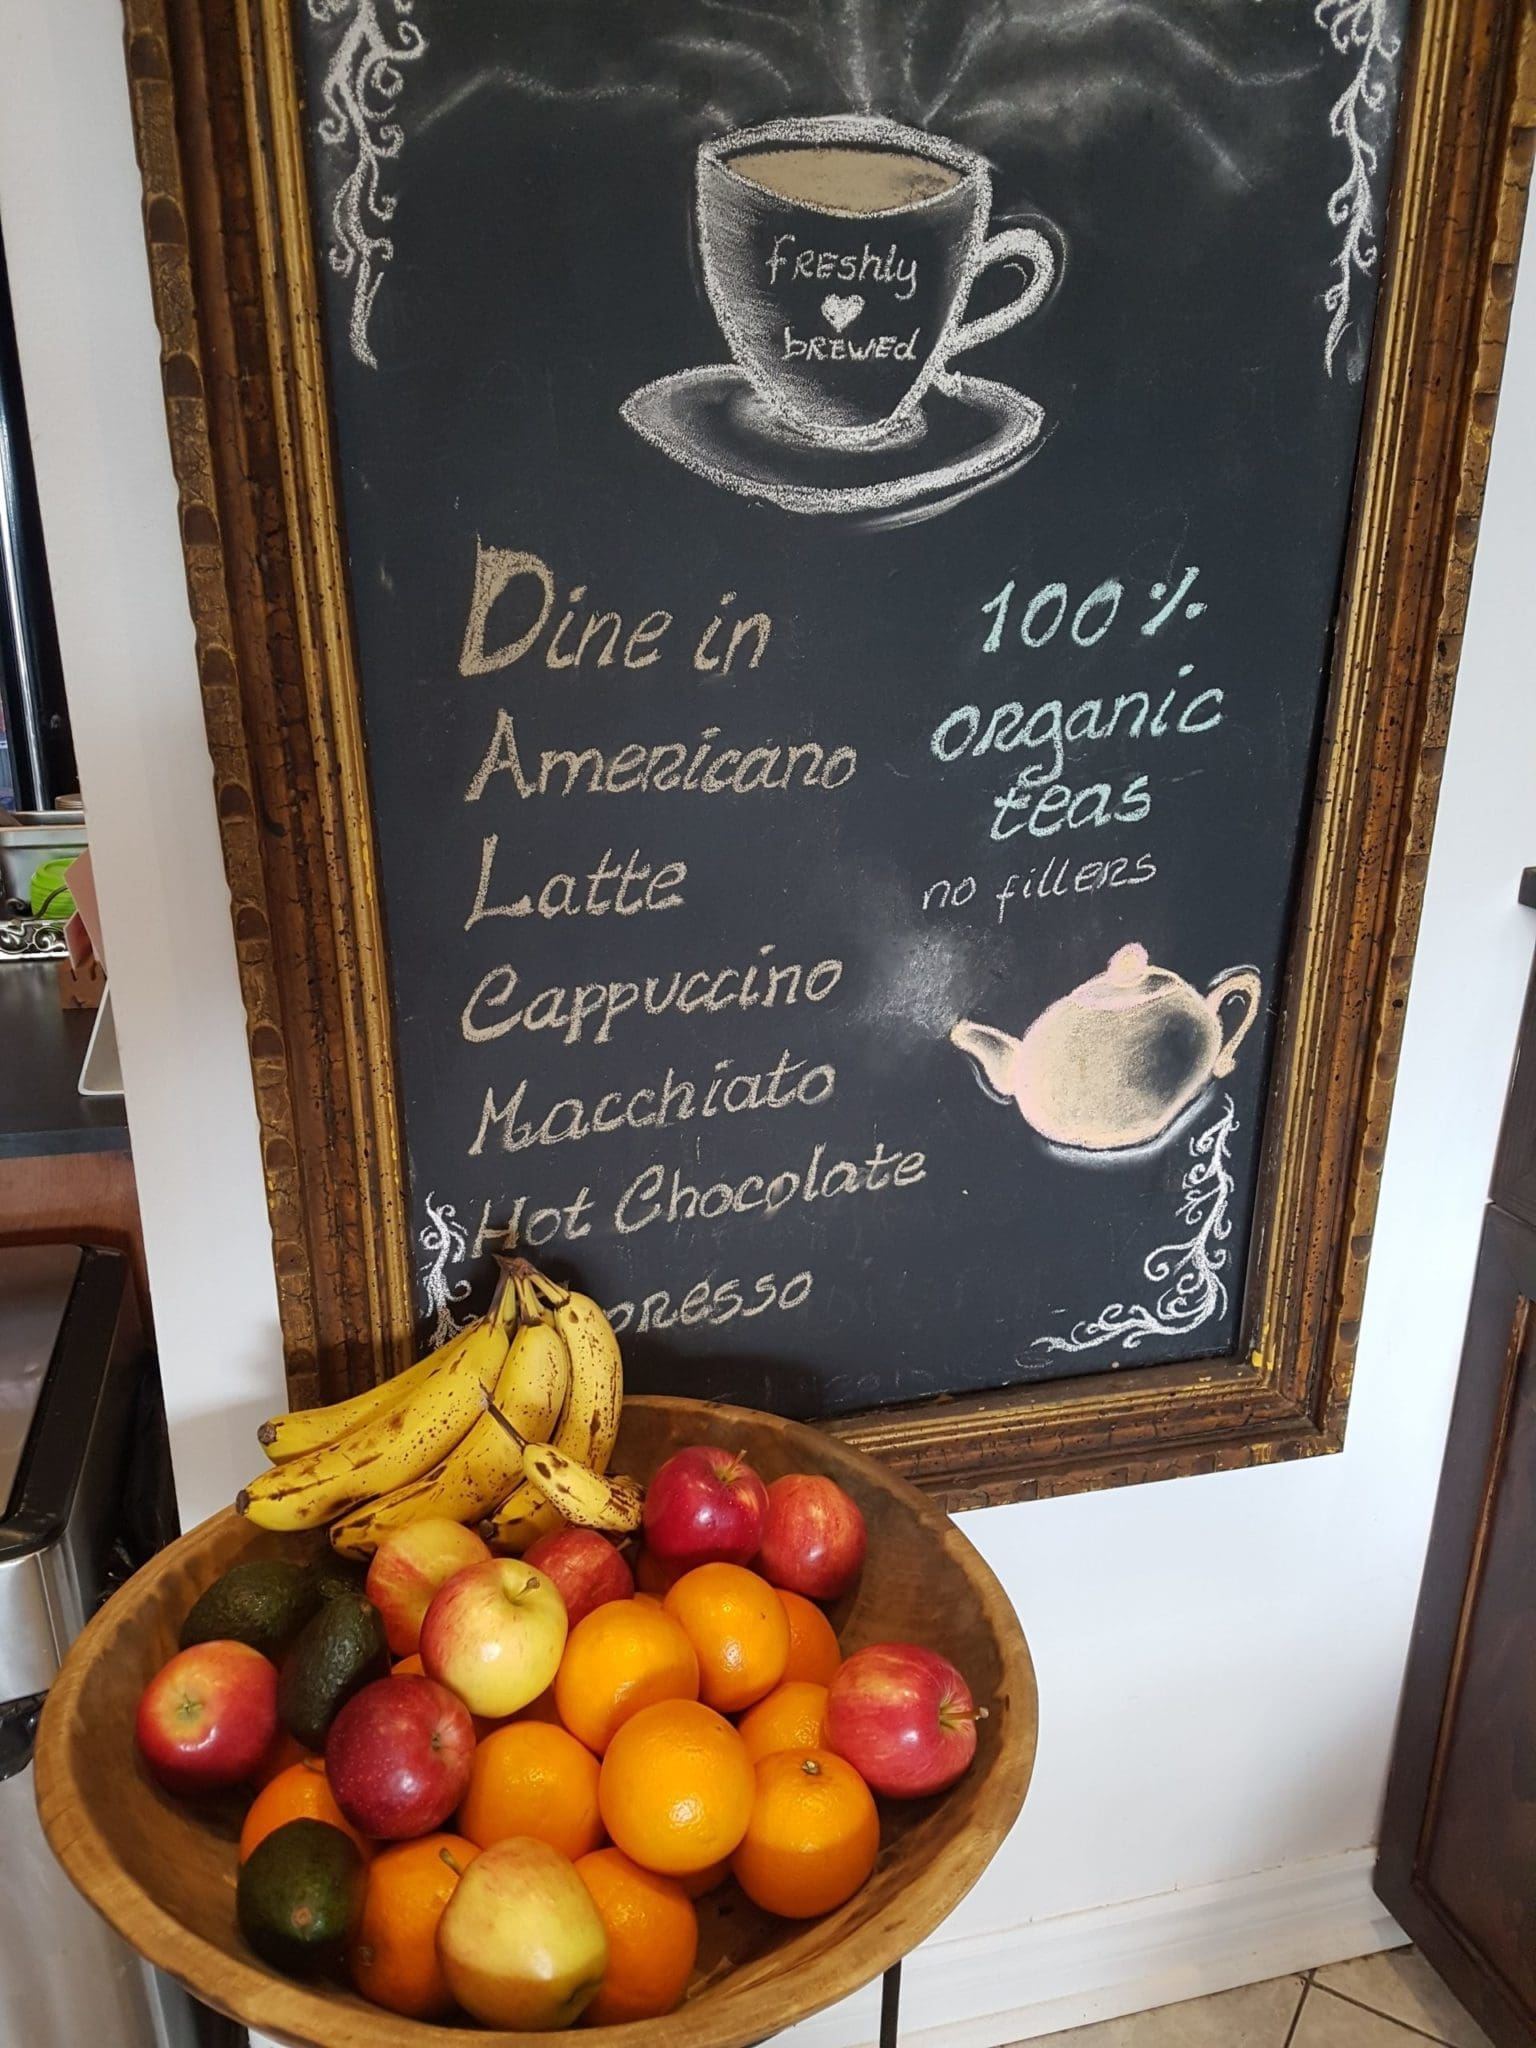 freshly
brewed
Dine in
Americano
Latte
Cappuccino
Macchiato
Hot Chocolate
100%
organic
teas
no fillers